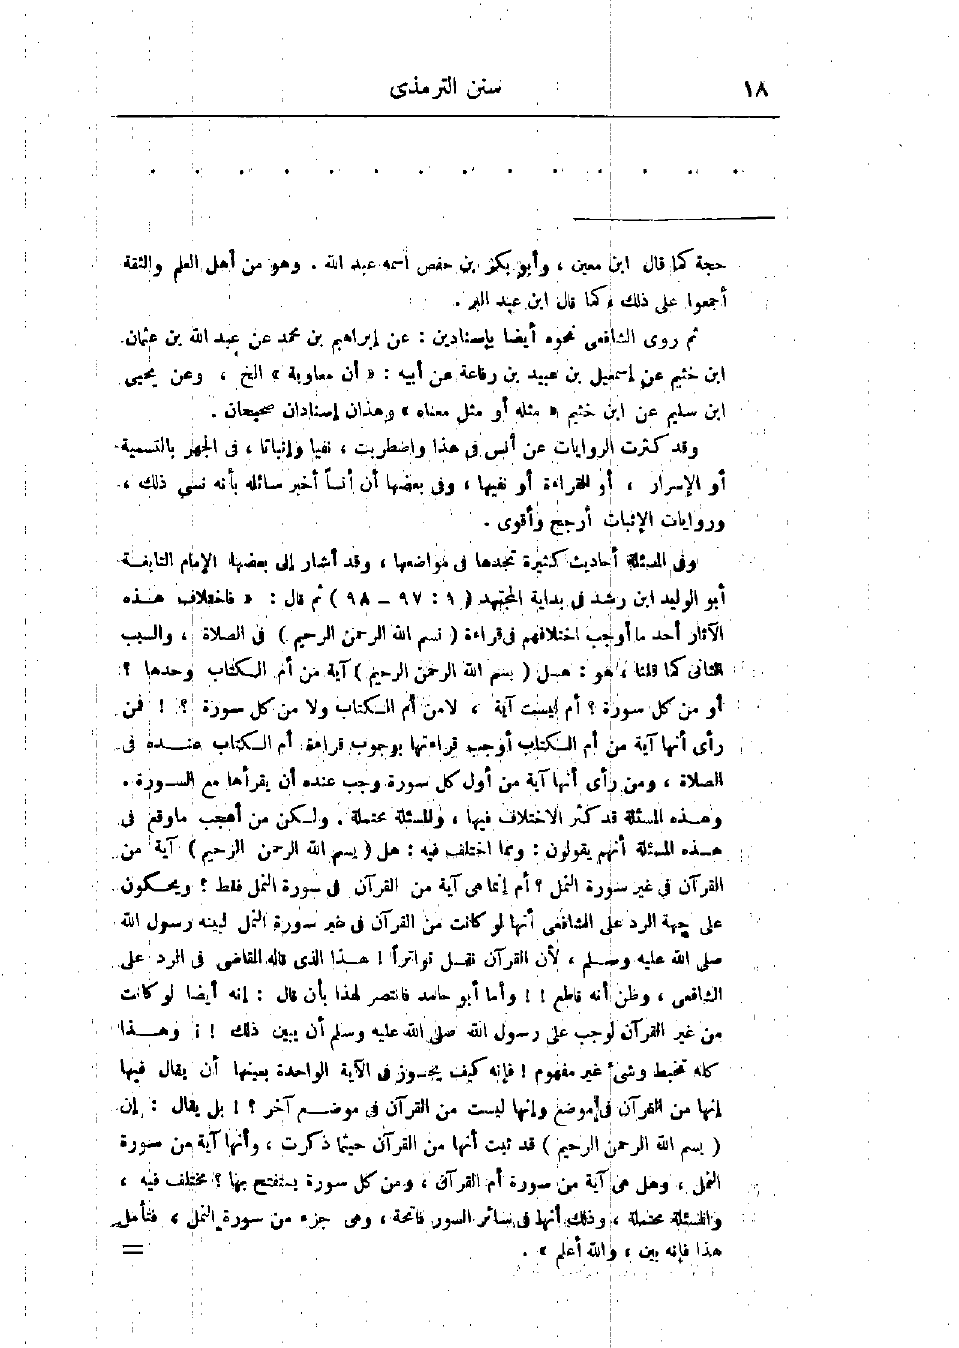 ١٨
سنن الترمذى
حجة كما قال ابن معين ، وأبو بكر بن حفص اسمه عبد الله . وهو من أهل العلم والثقة
أجمعوا على ذلك ، كما قال ابن عبد البر .
ثم روى الشافعى نحوه أيضا بإسنادين : عن إبراهيم بن محمد عن عبد الله بن عثمان
ابن خثيم عن إسمعيل بن عبيد بن رفاعة عن أبيه : « أن معاوية » الخ ، وعن يحيى
ابن سليم عن ابن خثيم « مثله أو مثل معناه » وهذان إسنادان صحيحان .
وقد كثرت الروايات عن أنس فى هذا واضطربت ، نفيا وإثباتا ، فى الجهر بالتسمية
أو الإسرار ، أو القراءة أو نفيها ، وفى بعضها أن أنساً أخبر سائله بأنه نسى ذلك ،
وروايات الإثبات أرجح وأقوى .
وفى المسئلة أحاديث كثيرة تجدها فى مواضعها ، وقد أشار إلى بعضها الإمام النابغة
أبو الوليد ابن رشد فى بداية المجتهد ( ١ : ٩٧ ـ ٩٨ ) ثم قال : « فاختلاف هذه
الآثار أحد ما أوجب اختلافهم فى قراءة ( بسم الله الرحمن الرحيم ) فى الصلاة ، والسبب
الثانى كما قلنا ، هو : هل ( بسم الله الرحمن الرحيم ) آية من أم الكتاب وحدها ؟
أو من كل سورة ؟ أم ليست آية ، لا من أم الكتاب ولا من كل سورة ؟ ! فمن
رأى أنها آية من أم الكتاب أوجب قراءتها بوجوب قراءة أم الكتاب عنده فى
الصلاة ، ومن رأى أنها آية من أول كل سورة وجب عنده أن يقرأها مع السورة .
وهذه المسئلة قد كثر الاختلاف فيها ، والمسئلة محتملة . ولكن من أعجب ماوقع فى
هذه المسئلة أنهم يقولون : ومما اختلف فيه : هل ( بسم الله الرحمن الرحيم ) آية من
القرآن فى غير سورة النمل ؟ أم إنما هى آية من القرآن فى سورة النمل فقط ؟ ويحكون
على جهة الرد على الشافعى أنها لو كانت من القرآن فى غير سورة النمل لبينه رسول الله
صلى الله عليه وسلم ، لأن القرآن نقل تواتراً ! هذا الذى قاله القاضى فى الرد على
الشافعى ، وظن أنه قاطع ! ! وأما أبو حامد فانتصر لهذا بأن قال : إنه أيضا لو كانت
من غير القرآن لوجب على رسول الله صلى الله عليه وسلم أن يبين ذلك ! ! وهذا
كله تخبط وشىء غير مفهوم ! فإنه كيف يجوز فى الآية الواحدة بعينها أن يقال فيها
إنها من القرآن فى موضع وإنها ليست من القرآن فى موضع آخر ؟ ! بل يقال : إن
( بسم الله الرحمن الرحيم ) قد ثبت أنها من القرآن حيثما ذكرت ، وأنها آية من سورة
النمل ، وهل هى آية من سورة أم القرآن ، ومن كل سورة يستفتح بها ؟ مختلف فيه ،
والمسئلة محتملة ، وذلك أنها فى سائر السور فاتحة ، وهى جزء من سورة النمل ، فتأمل
هذا فإنه بين ، والله أعلم » .
=